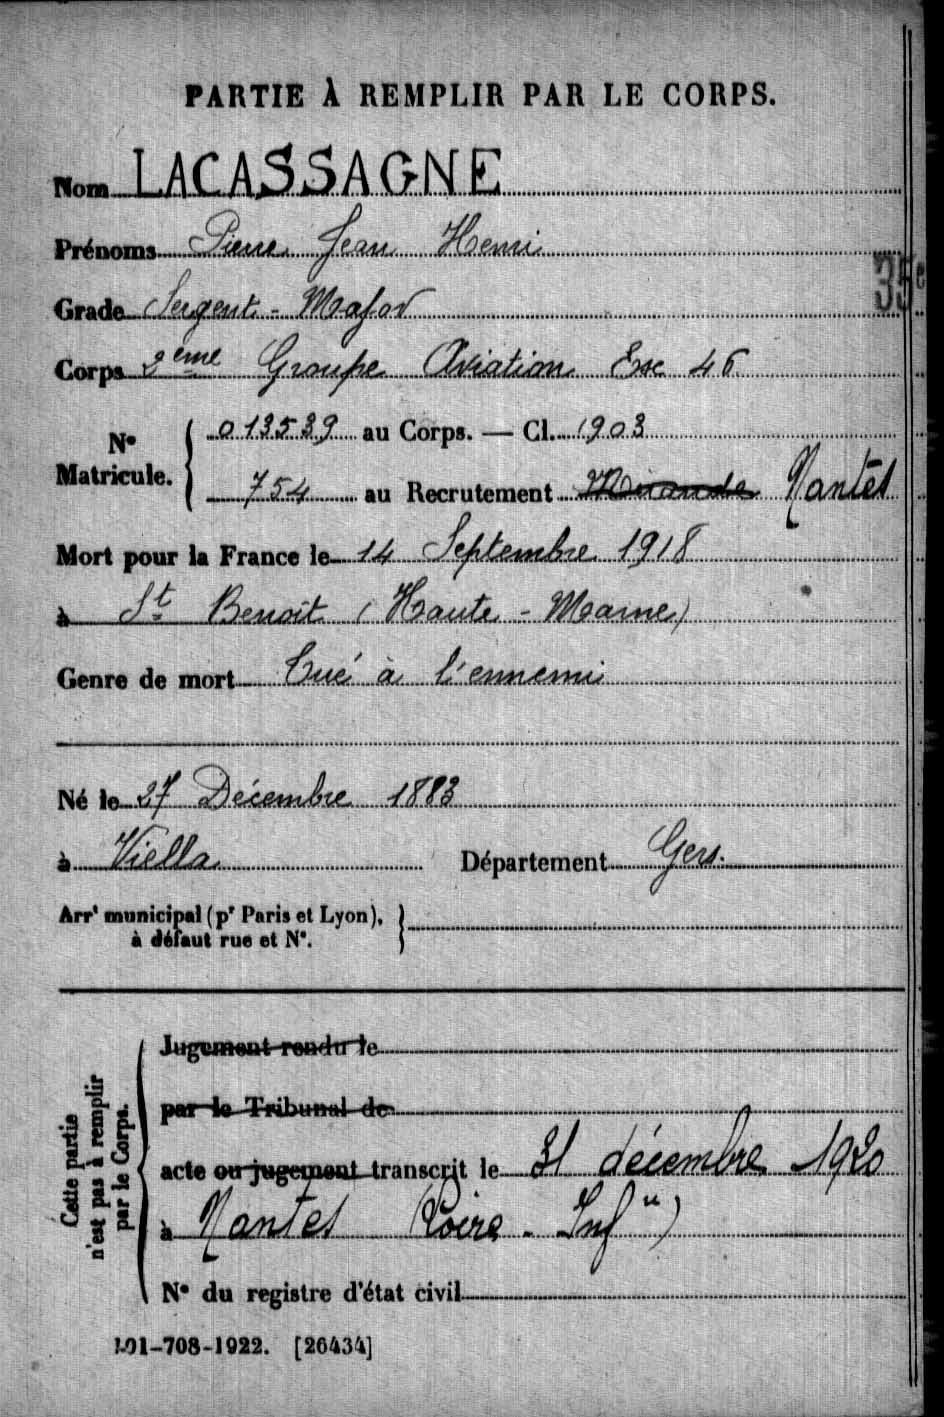 PARTIE À REMPLIR PAR LE CORPS.
Nom LACASSAGNE
Prénoms Pierre Jean Henri
35e
Grade Sergent-Major
Corps 2ème Groupe Aviation Esc 46
N° Matricule. { 013539 au Corps. — Cl. 1903
754 au Recrutement Mirande Nantes
Mort pour la France le 14 Septembre 1918
à St Benoît (Haute-Marne)
Genre de mort Tué à l'ennemi
Né le 27 Décembre 1883
à Viella Département Gers.
Arrt municipal (pr Paris et Lyon),
à défaut rue et N°. }
Cette partie
n'est pas à remplir
par le Corps.
Jugement rendu le
par le Tribunal de
acte ou jugement transcrit le 31 décembre 1920
à Nantes (Loire-Infre)
N° du registre d'état civil
101-708-1922. [26434]